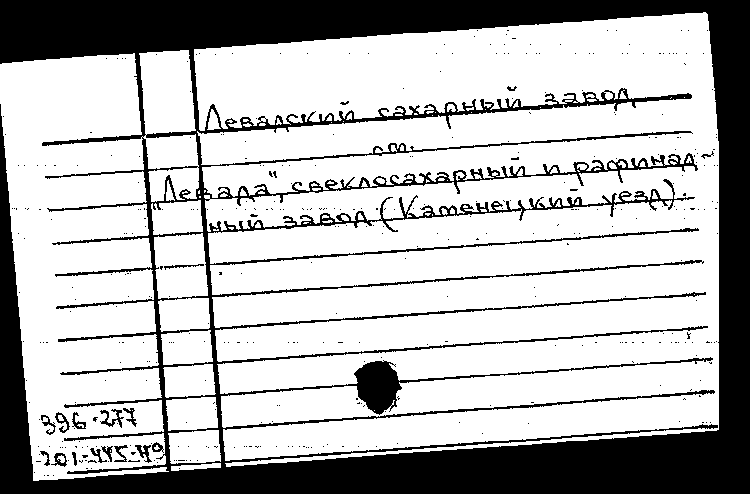 Левадский сахарный завод
см.
"Левада", свеклосахарный и рафинад-
ный завод (Каменецкий уезд).
396-277